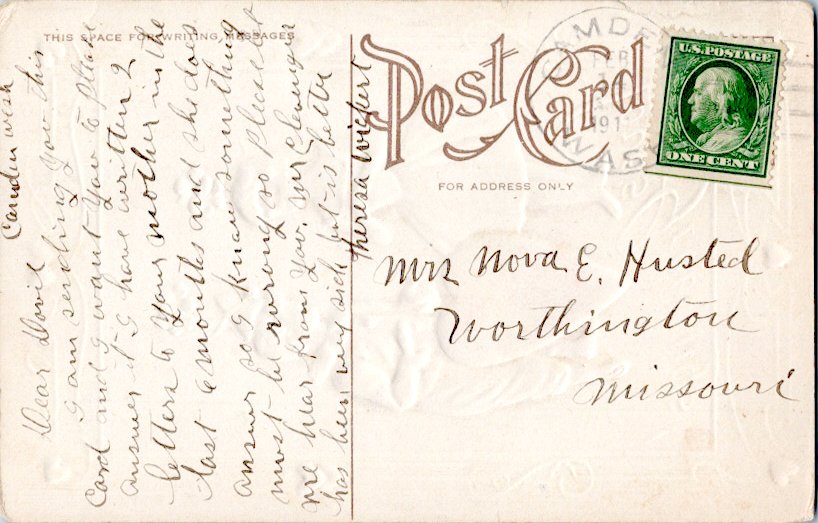 THIS SPACE FOR WRITING MESSAGES
Post Card
FOR ADDRESS ONLY
CAMDEN
FEB
191
WASH
U.S. POSTAGE
ONE CENT
Camden Wash
Dear
I am sending you this
card and I want you to please
answer it I have written 2
letters to your mother in the
last months and she does
answer so I know something
must be wrong so please let
me hear from you. Mr Clevenger
has been very sick but is better
Theresa Wickert
Mrs Nova E. Husted
Worthington
Missouri